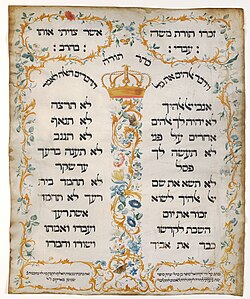 זכרו תורת משה
עבדי:
אשר צויתי אותו
בחרב:
כתר תורה
וידבר אלהים את כל
הדברים האלה לאמר
אנכי יי אלהיך
לא יהיה לך אלהים
אחרים על פני
לא תעשה לך
פסל
לא תשא את שם
יי אלהיך לשוא
זכור את יום
השבת לקדשו
כבד את אביך
לא תרצח
לא תנאף
לא תגנב
לא תענה ברעך
עד שקר
לא תחמד בית
רעך לא תחמד
אשת רעך
ועבדו ואמתו
ושורו וחמרו